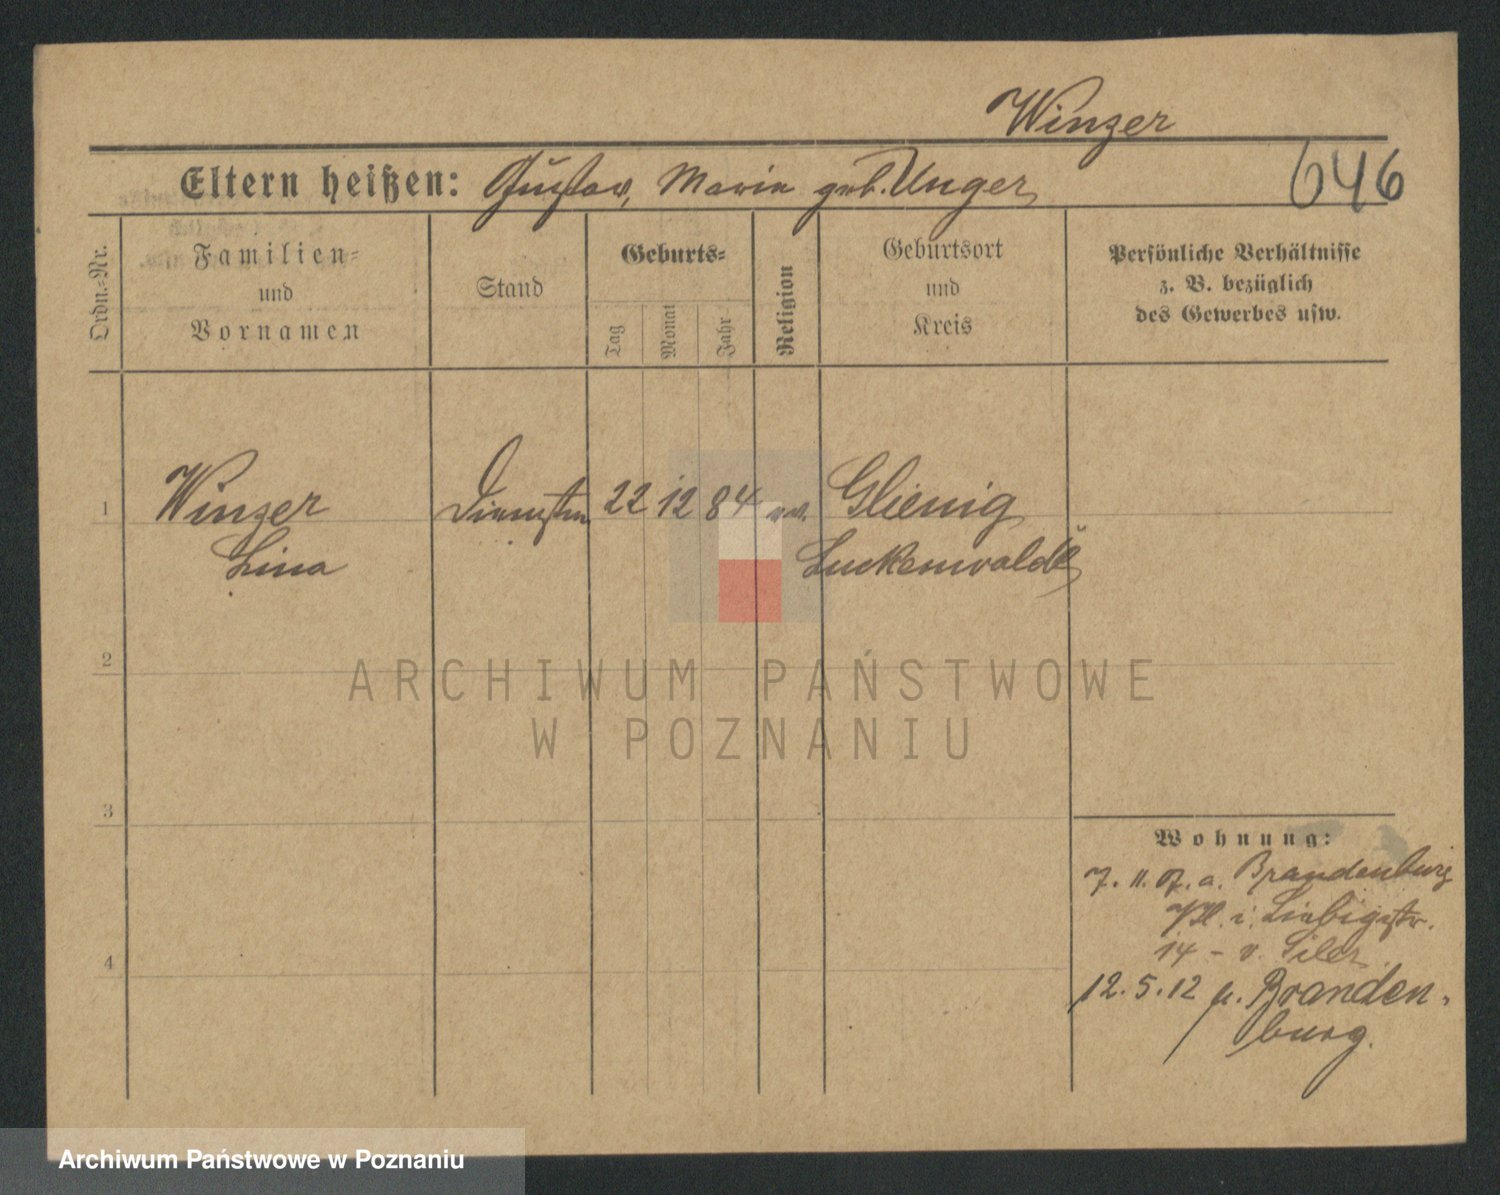 Winzer
646
Eltern heißen: Gustav, Marie geb. Unger
Ordn.-Nr.
Familien-
und
Vornamen
Stand
Geburts-
Tag
Monat
Jahr
Religion
Geburtsort
und
Kreis
Persönliche Verhältnisse
z. B. bezüglich
des Gewerbes usw.
1 Winzer 22 12 84 ev. Glienig
Lina Luckenwalde
2
3
4
Wohnung:
Brandenburg
i. Liebigstr.
14 - v.
12.5.12 n. Branden-
burg.
ARCHIWUM PAŃSTWOWE
W POZNANIU
Archiwum Państwowe w Poznaniu